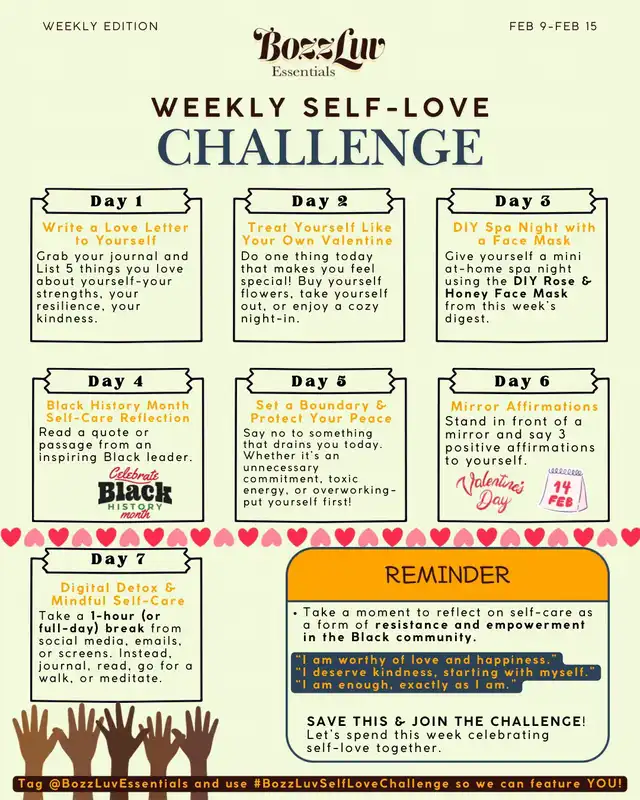 WEEKLY EDITION
FEB 9-FEB 15
BozzLuv
Essentials
WEEKLY SELF-LOVE
CHALLENGE
Day 1
Write a Love Letter
to Yourself
Grab your journal and
List 5 things you love
about yourself-your
strengths, your
resilience, your
kindness.
Day 2
Treat Yourself Like
Your Own Valentine
Do one thing today
that makes you feel
special! Buy yourself
flowers, take yourself
out, or enjoy a cozy
night-in.
Day 3
DIY Spa Night with
a Face Mask
Give yourself a mini
at-home spa night
using the DIY Rose &
Honey Face Mask
from this week's
digest.
Day 4
Black History Month
Self-Care Reflection
Read a quote or
passage from an
inspiring Black leader.
Celebrate
Black
HISTORY
month
Day 5
Set a Boundary &
Protect Your Peace
Say no to something
that drains you today.
Whether it's an
unnecessary
commitment, toxic
energy, or overworking-
put yourself first!
Day 6
Mirror Affirmations
Stand in front of a
mirror and say 3
positive affirmations
to yourself.
Valentine's
Day
14
FEB
Day 7
Digital Detox &
Mindful Self-Care
Take a 1-hour (or
full-day) break from
social media, emails,
or screens. Instead,
journal, read, go for a
walk, or meditate.
REMINDER
• Take a moment to reflect on self-care as
a form of resistance and empowerment
in the Black community.
"I am worthy of love and happiness."
"I deserve kindness, starting with myself."
"I am enough, exactly as I am."
SAVE THIS & JOIN THE CHALLENGE!
Let's spend this week celebrating
self-love together.
Tag @BozzLuvEssentials and use #BozzLuvSelfLoveChallenge so we can feature YOU!